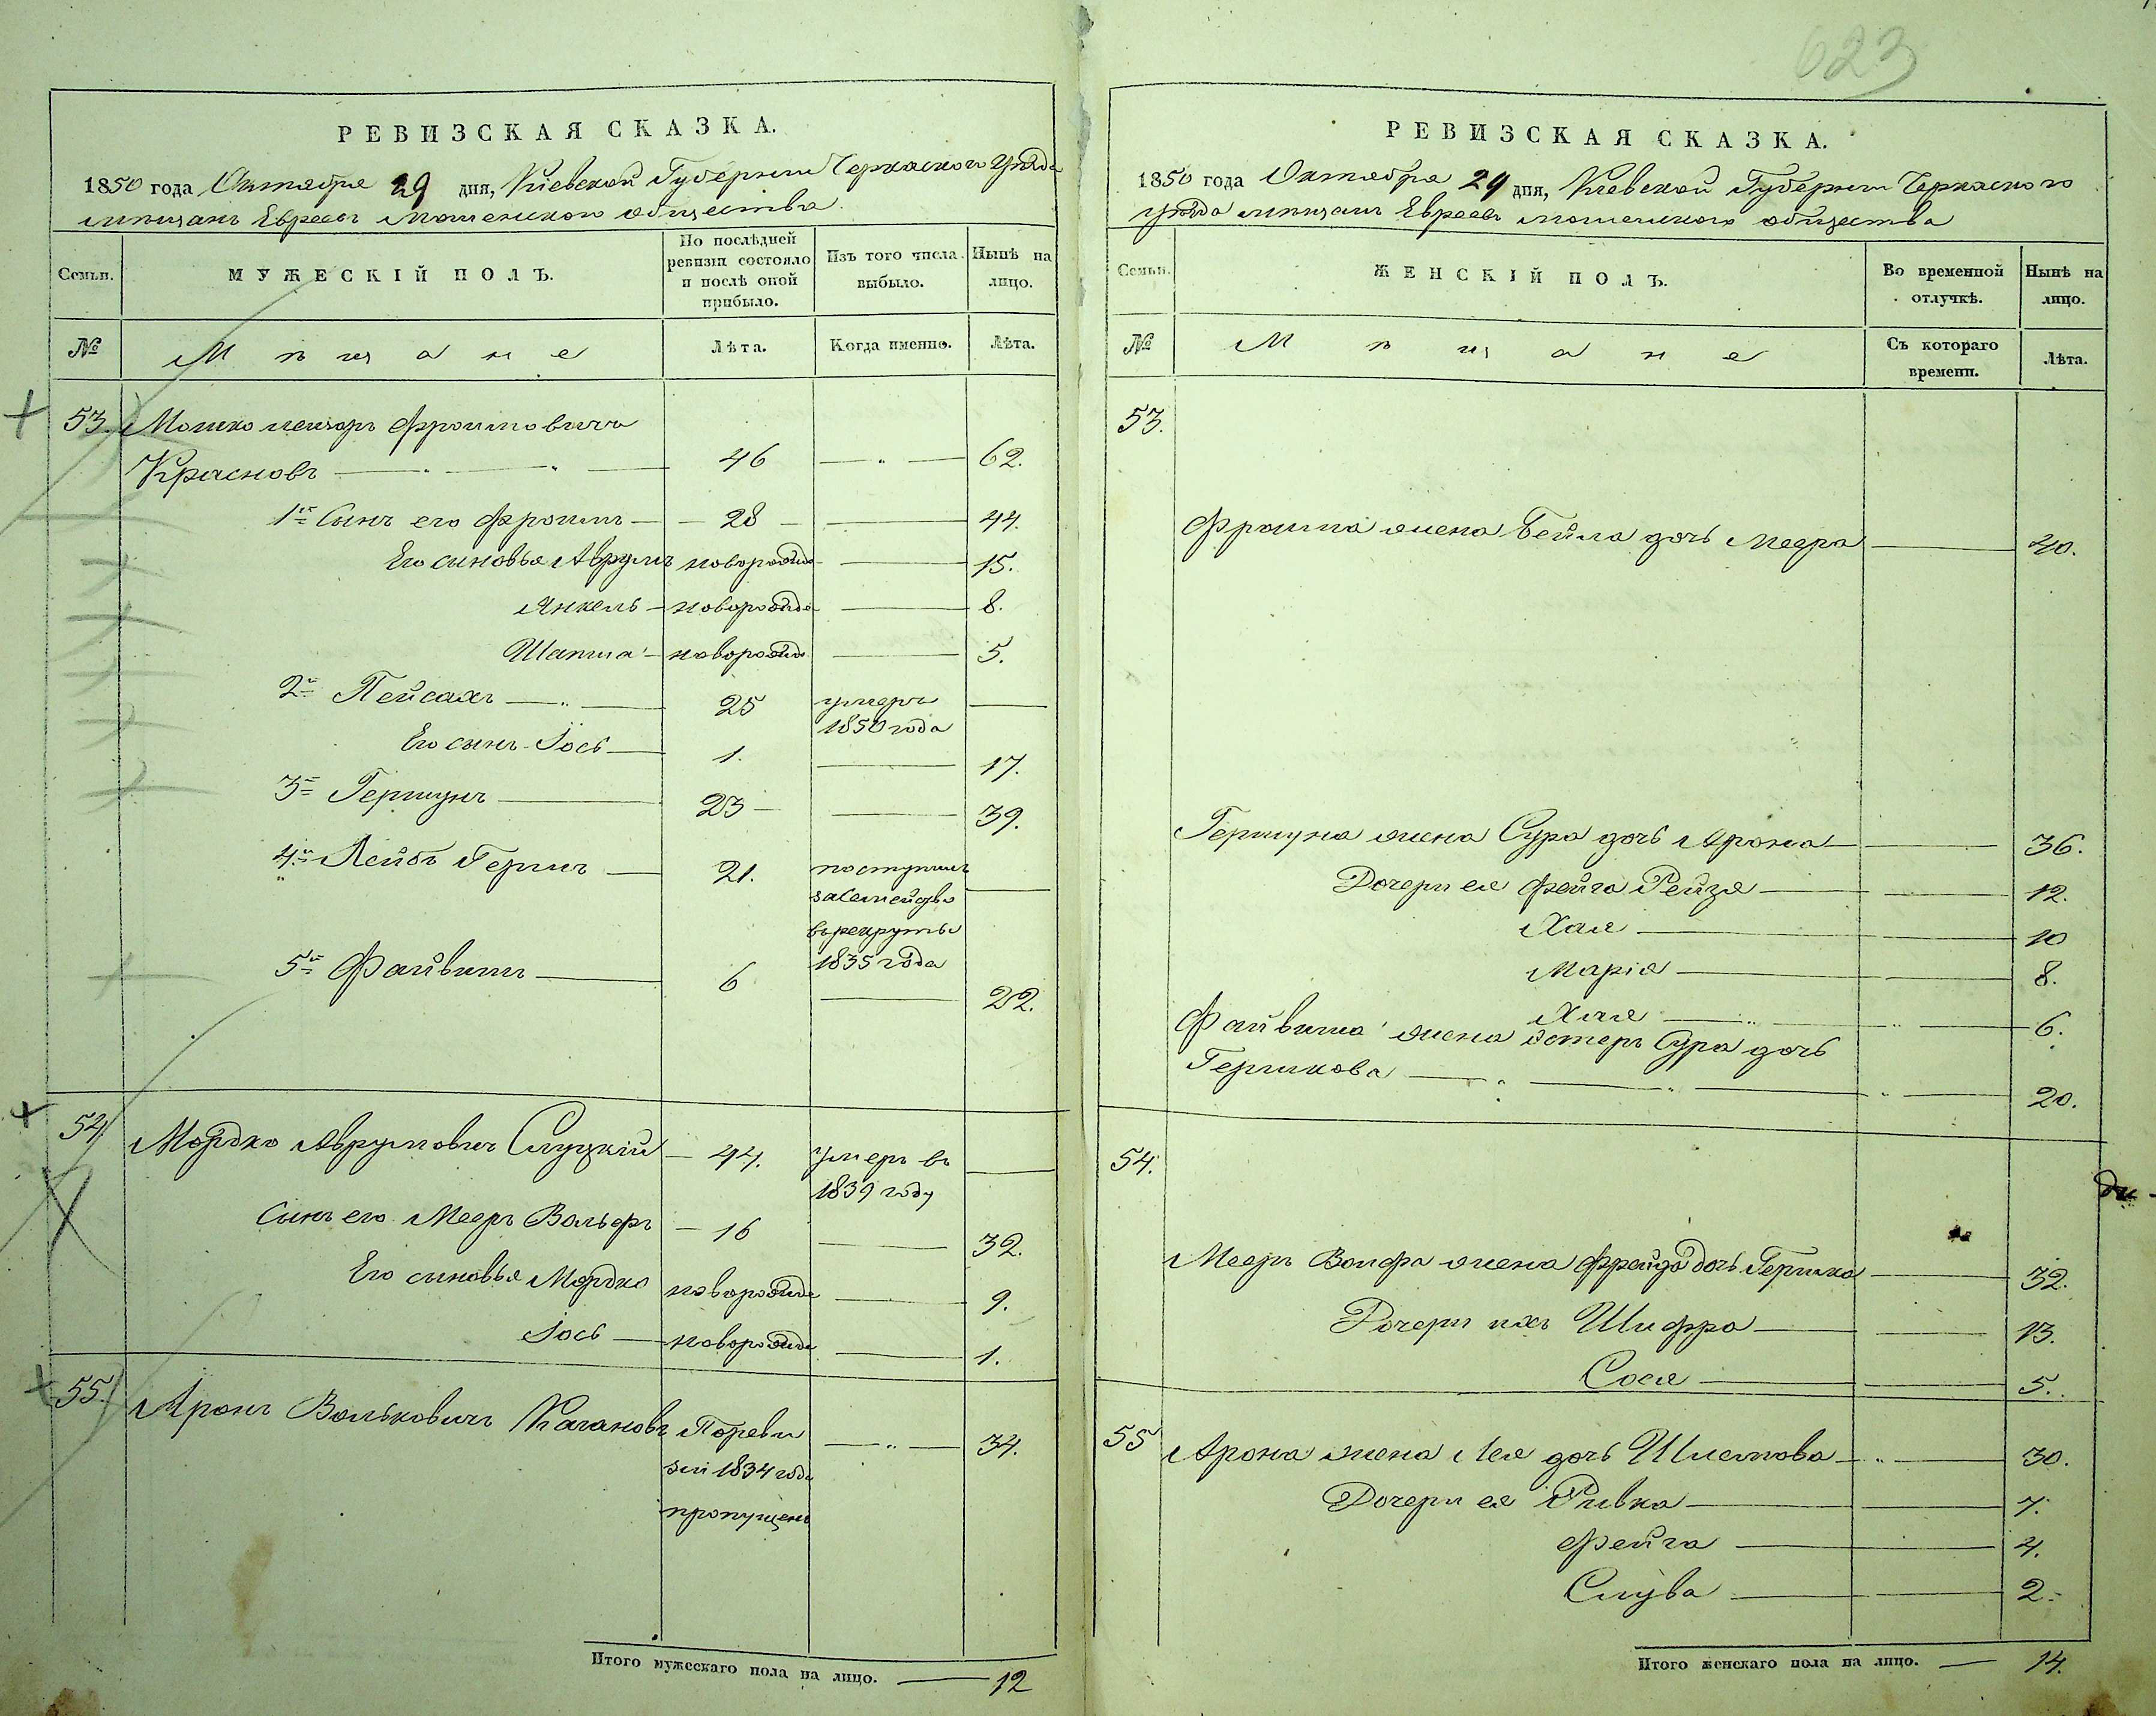 623
РЕВИЗСКАЯ СКАЗКА.
1850 года Октября 29 дня, Кіевской Губерніи Черкаского уѣзда
мѣщанъ Евреевъ Мошенского общества.
Семьи.
МУЖЕСКІЙ ПОЛЪ.
По послѣдней ревизіи состояло и послѣ оной прибыло.
Изъ того числа выбыло.
Нынѣ на лицо.
№
Мѣщане
Лѣта.
Когда именно.
Лѣта.
53. Мошко Лейзоръ Фроимовичъ
Красновъ 46 — " — 62.
1й Сынъ его Фроимъ 28 44.
Его сыновья Аврумъ новорожде 15.
Янкель новорожде 8.
Шапша новорожде 5.
2й Пейсахъ 25 умеръ 1850 года
Его сынъ Іось 1. 17.
3й Гершунъ 23 39.
4й Лейбъ Гершъ 21. поступилъ
за семейство
въ рекруты
1835 года
5й Файвишъ 6 22.
54. Мордко Аврумовичъ Слуцкій 44. умеръ въ
1839 году
Сынъ его Мееръ Вольфъ 16 32.
Его сыновья Мордко новорожде 9.
Іось новорожде 1.
55. Аронъ Вольковичъ Кагановъ По реви 34.
зіи 1834 года
пропущенъ
Итого мужескаго пола на лицо. 12
РЕВИЗСКАЯ СКАЗКА.
1850 года Октября 29 дня, Кіевской Губерніи Черкаского
уѣзда мѣщанъ Евреевъ Мошенского общества
Семьи.
ЖЕНСКІЙ ПОЛЪ.
Во временной отлучкѣ.
Нынѣ на лицо.
№
Мѣщане
Съ котораго времени.
Лѣта.
53.
Фроима жена Бейла дочь Меера 40.
Гершуна жена Сура дочь Арона 36.
Дочери ея Фейга Рейзя 12.
Хая 10
Марія 8.
Хая 6.
Файвиша жена Эстеръ Сура дочь
Гершкова 20.
54.
Мееръ Вольфа жена Фрейда дочь Гершка 32.
Дочери ихъ Шифра 13.
Сося 5.
55 Арона жена Лея дочь Шлемова 30.
Дочери ея Ривка 7.
Фейга 4.
Слува 2.
Итого женскаго пола на лицо. 14.